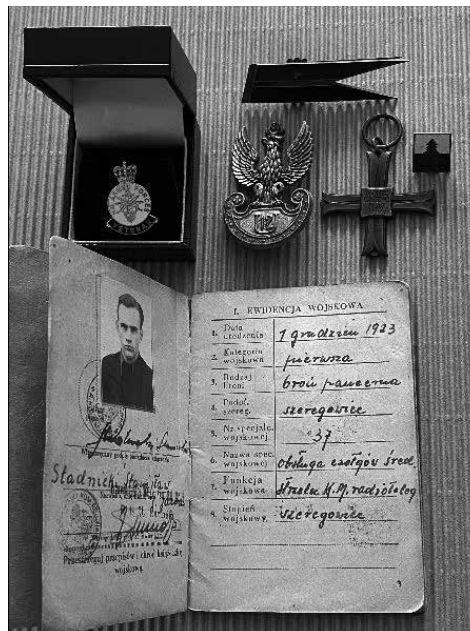 VETERAN
12
Stadnicki Stanisław
Przestrzegaj przepisów i chroń książeczkę
wojskową.
I. EWIDENCJA WOJSKOWA
1. Data urodzenia 1 grudzień 1923
2. Kategoria wojskowa pierwsza
3. Rodzaj broni broń pancerna
4. Podof. szereg. szeregowiec
5. Nr specjaln. wojskowej 37
6. Nazwa spec. wojskowej obsługa czołgów śred.
7. Funkcja wojskowa strzelec K.M. radioteleg
8. Stopień wojskowy szeregowiec